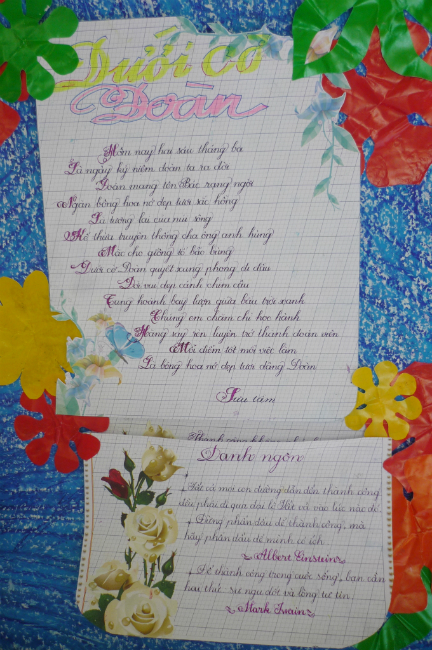 Dưới cờ
Đoàn
Hôm nay hai sáu tháng ba
Là ngày kỷ niệm đoàn ta ra đời
Đoàn mang tên Bác rạng ngời
Ngàn bông hoa nở đẹp tươi sắc hồng
Là tương lai của núi sông
Kế thừa truyền thống cha ông anh hùng
Mặc cho giông tố bão bùng
Dưới cờ Đoàn quyết xung phong đi đầu
Đôi vai đẹp cánh chim câu
Tung hoành bay lượn giữa bầu trời xanh
Chúng em chăm chỉ học hành
Hăng say rèn luyện trở thành đoàn viên
Mỗi điểm tốt mỗi việc làm
Là bông hoa nở đẹp tươi dâng Đoàn
Sưu tầm
Danh ngôn
+ Tất cả mọi con đường dẫn đến thành công
đều phải đi qua dấu lô Tất cả vào lúc nào đó.
+ Đừng phấn đấu để thành công, mà
hãy phấn đấu để mình có ích.
~ Albert Einstein ~
+ Để thành công trong cuộc sống, bạn cần
hai thứ: sự ngu dốt và lòng tự tin.
~ Mark Twain ~